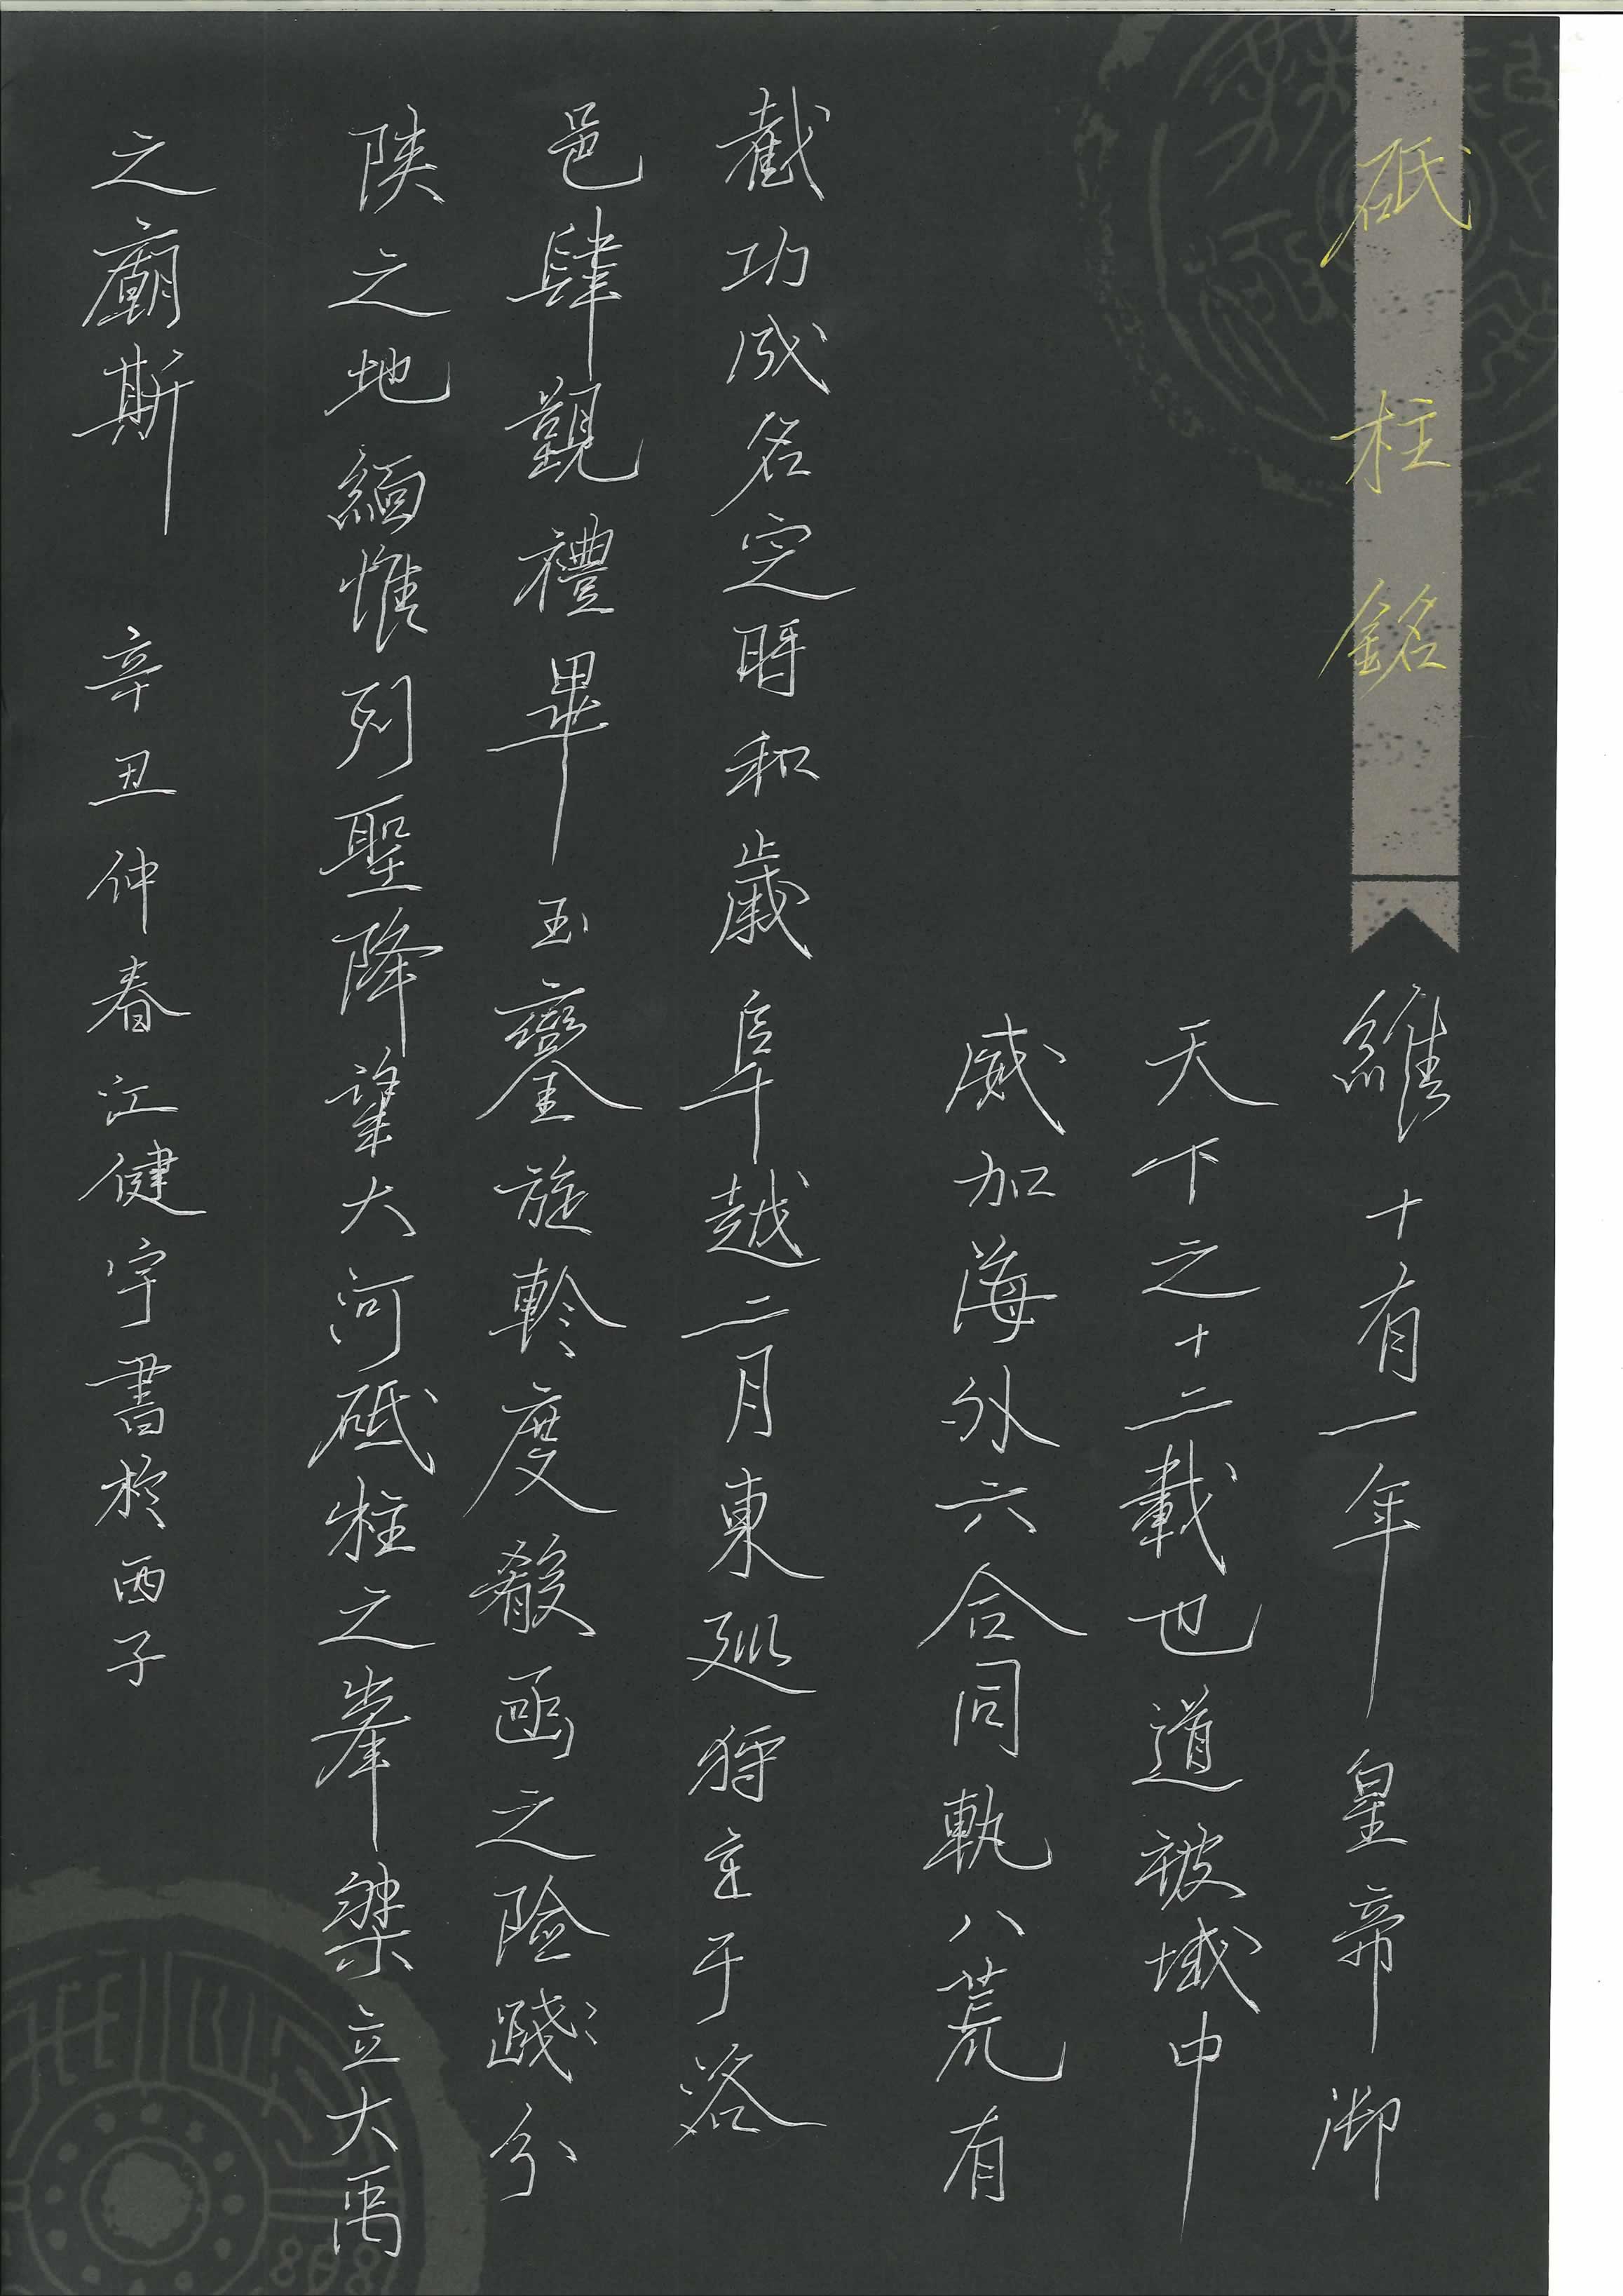 砥柱銘
維十有一年皇帝御
天下之十二載也道被域中
威加海外六合同軌八荒有
截功成名定時和歲阜越二月東巡狩至于洛
邑肆覲禮畢玉鑾旋軫度殽函之險踐分
陝之地緬惟列聖降望大河砥柱之峯桀立大禹
之廟斯
辛丑仲春江健宇書於西子